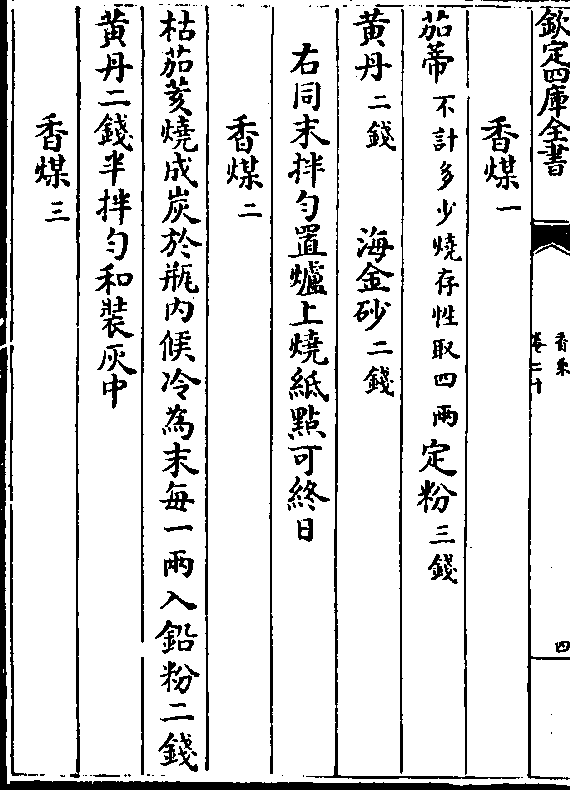 欽定四庫全書
香乘
卷二十
四
香煤一
茄蒂不計多少燒存性取四兩 定粉三錢
黃丹二錢 海金砂二錢
右同末拌勻置爐上燒紙點可終日
香煤二
枯茄荄燒成炭於瓶內候冷為末每一兩入鉛粉二錢
黃丹二錢半拌勻和裝灰中
香煤三